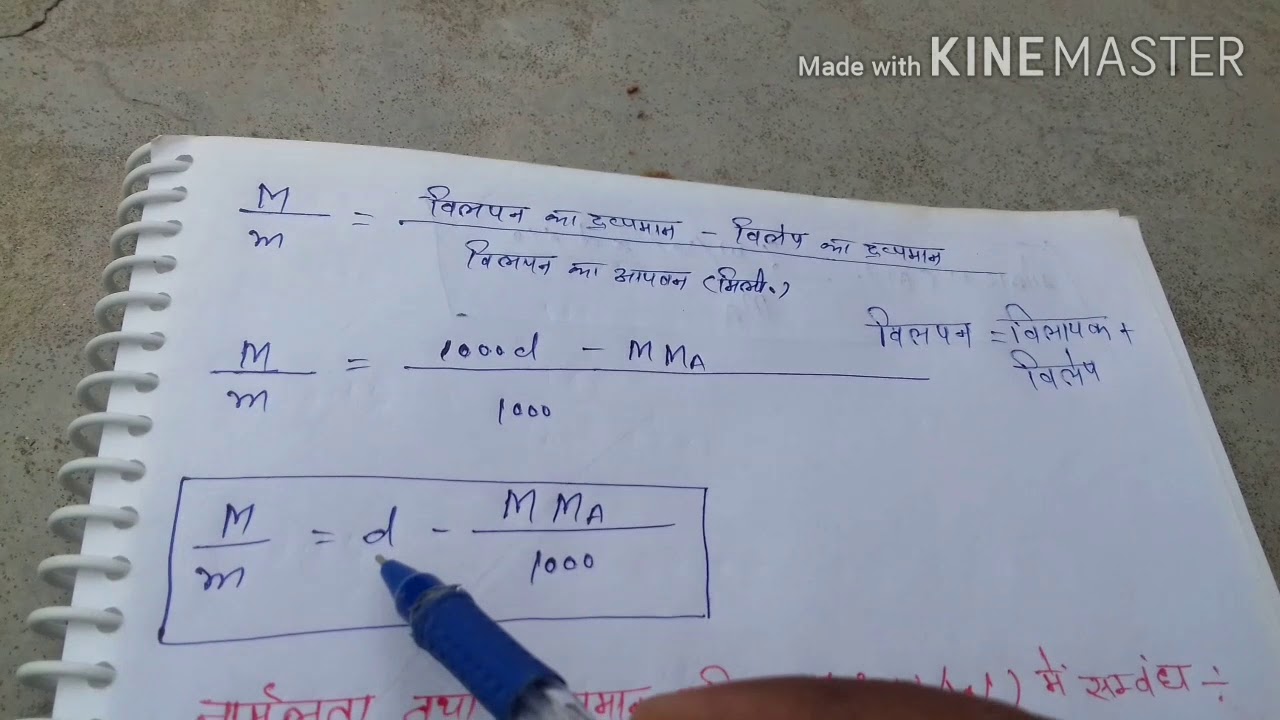 Made with KINEMASTER
M/m = विलयन का द्रव्यमान - विलेय का द्रव्यमान
विलयन का आयतन (मिली.)
विलयन = विलायक +
विलेय
M/m = 1000d - MMA
1000
M/m = d - MMA/1000
तथा मान में सम्बंध ÷